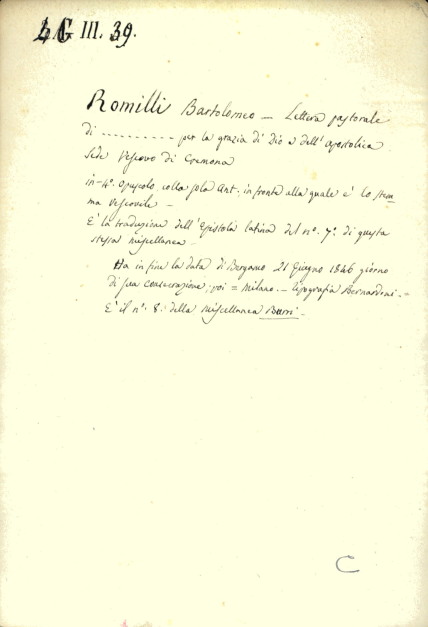 LG III. 39.
Romilli Bartolomeo — Lettera pastorale
di ---------- per la grazia di Dio e dell' apostolica
Sede Vescovo di Cremona
in-4.° Opuscolo colla sola Ant: in fronte alla quale è lo stem
ma Vescovile —
È la traduzione dell' Epistola latina del n.° 7.° di questa
stessa miscellanea —
Ha in fine la data di Bergamo 21 Giugno 1846 giorno
di sua consecrazione, poi = Milano — tipografia Bernardoni. —
È il n.° 8. della Miscellanea
C